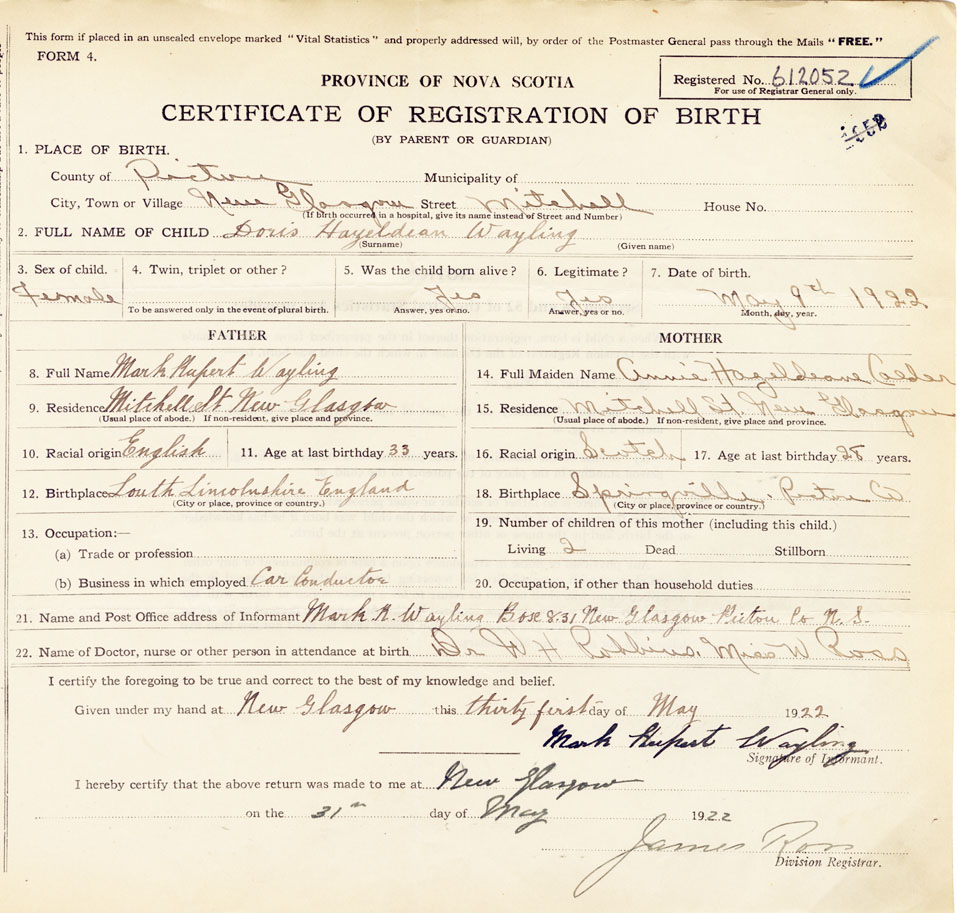 This form if placed in an unsealed envelope marked "Vital Statistics" and properly addressed will, by order of the Postmaster General pass through the Mails "FREE."
FORM 4.
PROVINCE OF NOVA SCOTIA
Registered No. 612052
For use of Registrar General only.
CERTIFICATE OF REGISTRATION OF BIRTH
(BY PARENT OR GUARDIAN)
1. PLACE OF BIRTH.
County of Pictou Municipality of
City, Town or Village New Glasgow Street Mitchell House No.
(If birth occurred in a hospital, give its name instead of Street and Number)
2. FULL NAME OF CHILD Doris Hazeldean Wayling
(Surname) (Given name)
3. Sex of child. 4. Twin, triplet or other? 5. Was the child born alive? 6. Legitimate? 7. Date of birth.
Female Yes Yes May 9th 1922
To be answered only in the event of plural birth. Answer, yes or no. Answer, yes or no. Month, day, year.
FATHER
8. Full Name Mark Rupert Wayling
9. Residence Mitchell St New Glasgow
(Usual place of abode.) If non-resident, give place and province.
10. Racial origin English 11. Age at last birthday 33 years.
12. Birthplace South Lincolnshire England
(City or place, province or country.)
13. Occupation:—
(a) Trade or profession
(b) Business in which employed Car Conductor
MOTHER
14. Full Maiden Name Annie Hazeldeane Calder
15. Residence Mitchell St. New Glasgow
(Usual place of abode.) If non-resident, give place and province.
16. Racial origin Scotch 17. Age at last birthday 28 years.
18. Birthplace Springville. Pictou Co
(City or place, province or country.)
19. Number of children of this mother (including this child.)
Living 2 Dead Stillborn
20. Occupation, if other than household duties
21. Name and Post Office address of Informant Mark R. Wayling Box 831 New Glasgow Pictou Co N. S.
22. Name of Doctor, nurse or other person in attendance at birth Dr W H Robbins. Miss W Ross
I certify the foregoing to be true and correct to the best of my knowledge and belief.
Given under my hand at New Glasgow this thirty first day of May 1922
Mark Rupert Wayling
Signature of Informant.
I hereby certify that the above return was made to me at New Glasgow
on the 31st day of May 1922
James Ross
Division Registrar.